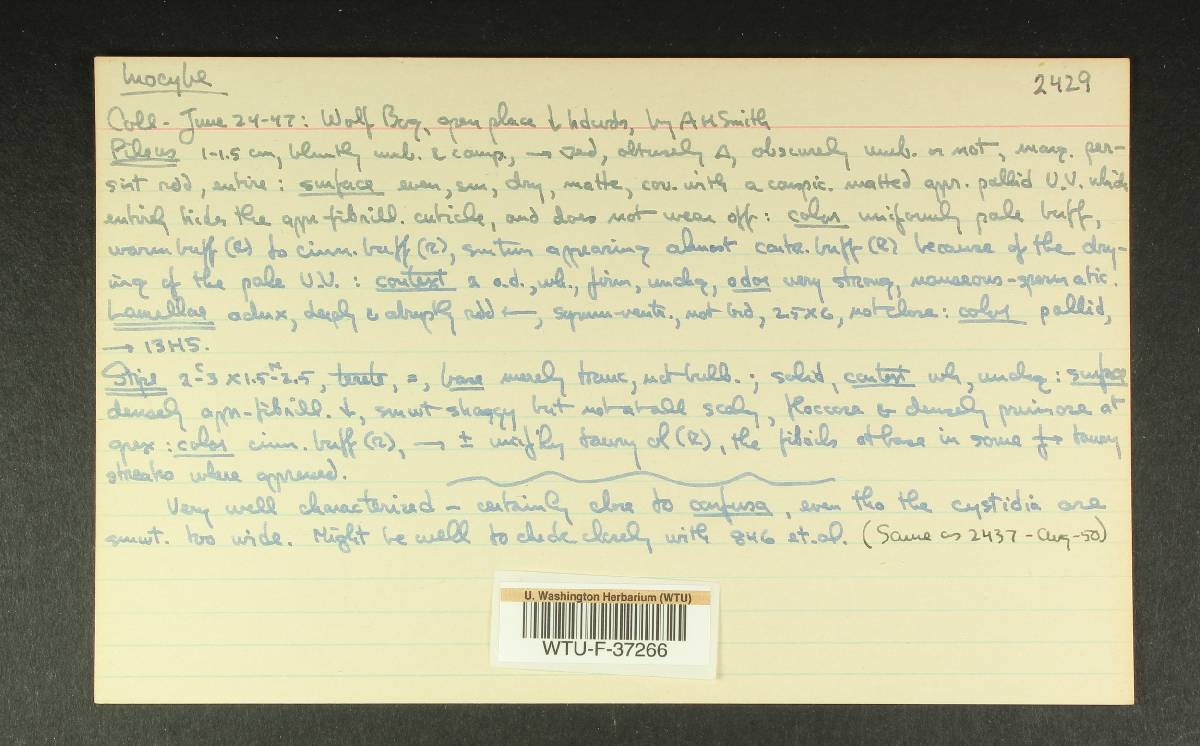 Inocybe 2429
Coll - June 24-47: Wolf Bog, open place & hdwds, by AHSmith
Pileus 1-1.5 cm, bluntly umb. & camp., → obtusely Δ, obscurely umb. or not, marg. per-
sist rdd, entire: surface even, sm, dry, matte, cov. with a conspic. matted appr. pallid U.V. which
entirely hides the appr-fibrill. cuticle, and does not wear off: color uniformly pale buff,
warm buff (R) to cinn. buff (R), smtms appearing almost buff (R) because of the dry-
ing of the pale U.V.: context a o.d., wh., firm, unchg, odor very strong, nauseous-spermatic.
Lamellae adnx, deeply & abruptly rdd ←, symm-ventr., not brd, 2.5x6, not close: color pallid,
→ 13H5.
Stipe 2-3 x 1.5-2.5, terete, =, base merely trunc, not bulb.; solid, context wh, unchg: surface
densely appr-fibrill. ↓, smwt shaggy but not at all scaly, floccose & densely pruinose at
apex: color cinn. buff (R), → ± unif'ly tawny ol (R), the fibrils at base in some tawny
streaks where appressed.
Very well characterized - certainly close to confusa, even tho the cystidia are
smwt. too wide. Might be well to check closely with 846 et. al. (Same as 2437 - Aug-50)
U. Washington Herbarium (WTU)
WTU-F-37266